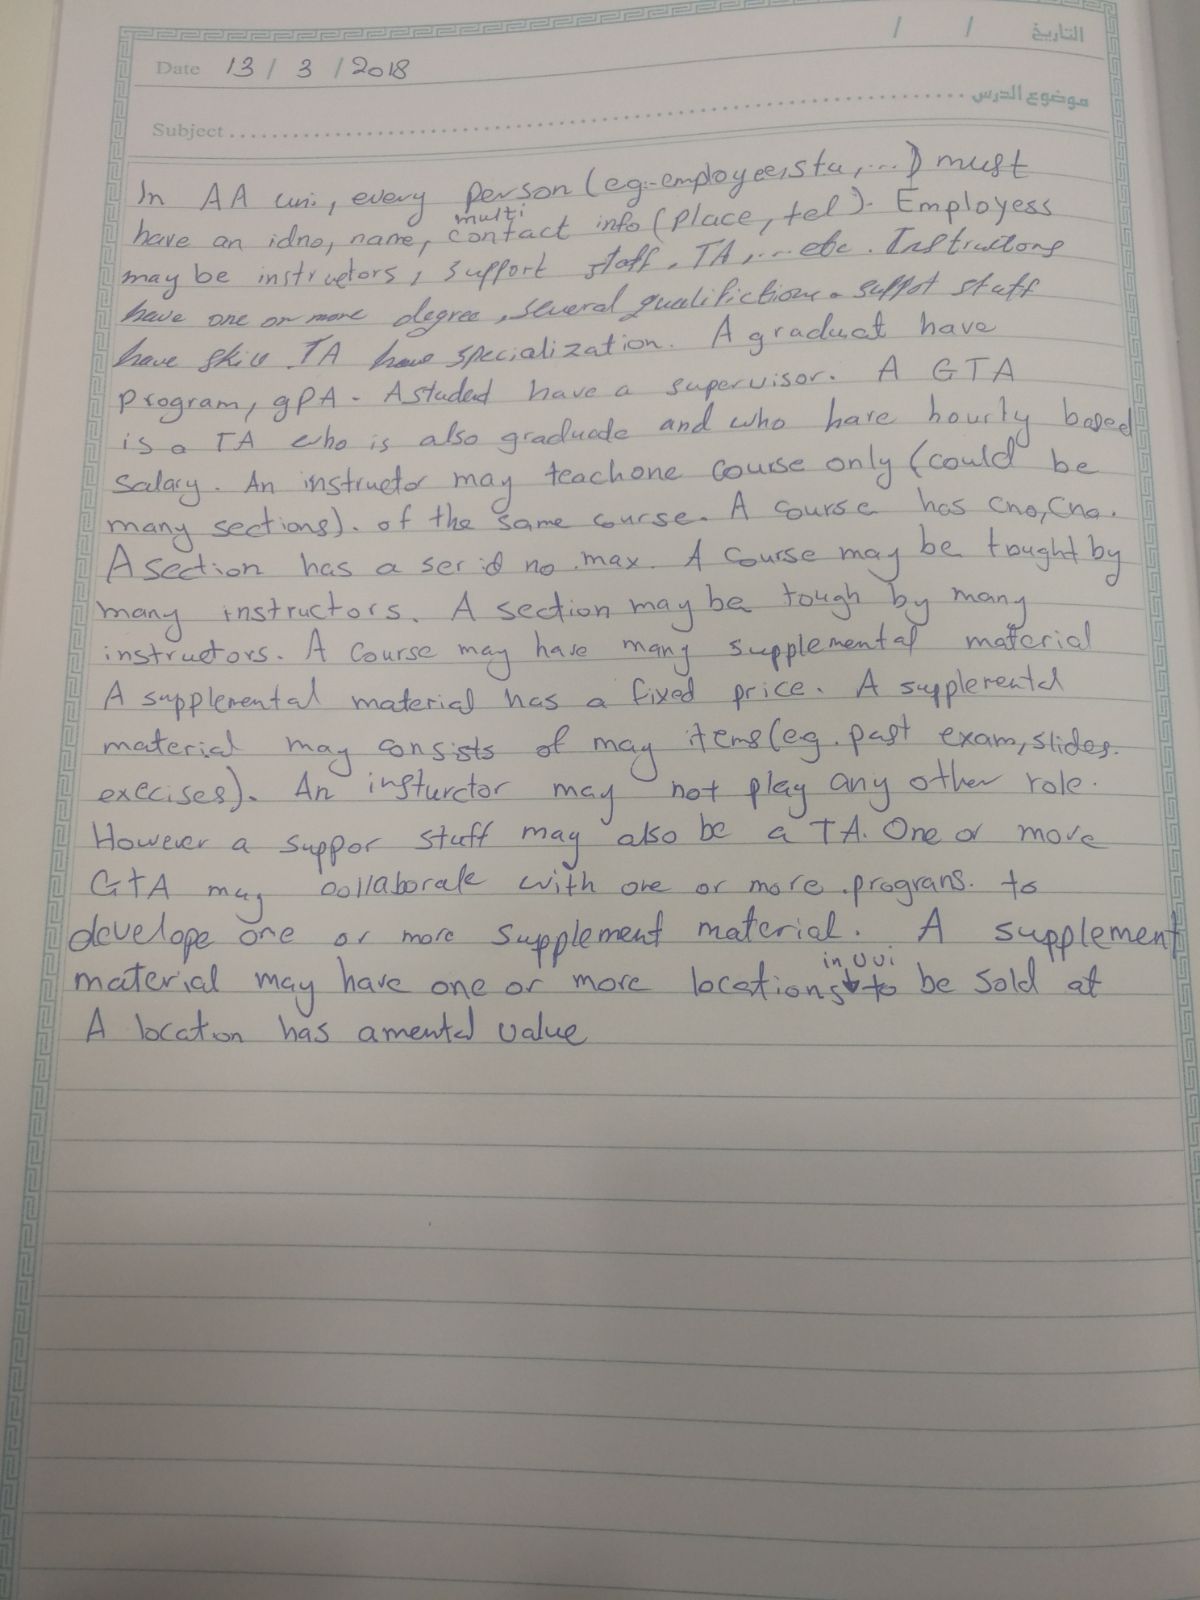 التاريخ / /
Date 13 / 3 / 2018
موضوع الدرس
Subject
In AA uni, every person (eg:-employee, stu, ...) must
multi
have an idno, name, contact info (place, tel). Employess
may be instructors, support staff, TA, ... etc. Instructors
have one or more degree, several qualifiction. suppot staff
have skill. TA have specialization. A graduat have
program, gPA. A studed have a supervisor. A GTA
is a TA who is also graduade and who have hourly based
salary. An instructor may teach one course only (could be
many sections). of the same course. A course has Cno, Cna.
A section has a ser id no. max. A course may be tought by
many instructors. A section may be tough by many
instructors. A course may have many supplemental material
A supplemental material has a fixed price. A supplemental
material may consists of may items (eg. past exam, slides.
excercises). An insturctor may not play any other role.
However a suppor stuff may also be a TA. One or more
GTA may collaborate with one or more prograns. to
develope one or more supplement material. A supplement
in uui
material may have one or more locations to be sold at
A location has a mental value